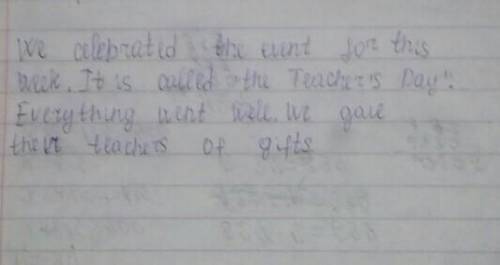 We celebrated the event for this
week. It is called "the Teacher's Day".
Everything went well. We gave
their teachers of gifts